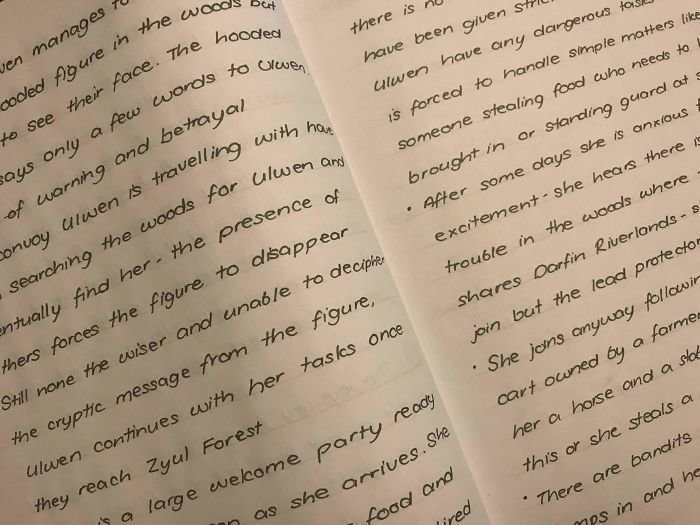 manages to
figure in the woods but
to see their face. The hooded
says only a few words to Ulwen
of warning and betrayal
convoy Ulwen is travelling with have
searching the woods for Ulwen and
find her - the presence of
forces the figure to disappear
Still none the wiser and unable to decipher
the cryptic message from the figure,
Ulwen continues with her tasks once
they reach Zyul Forest
a large welcome party ready
as she arrives. She
food and
there is no
have been given
Ulwen have any dangerous
is forced to handle simple matters like
someone stealing food who needs to
brought in or standing guard at
• After some days she is anxious
excitement - she hears there is
trouble in the woods where
shares Darfin Riverlands -
join but the lead
• She joins anyway
cart owned by a
her a horse and a
this or she steals a
• There are bandits
in and